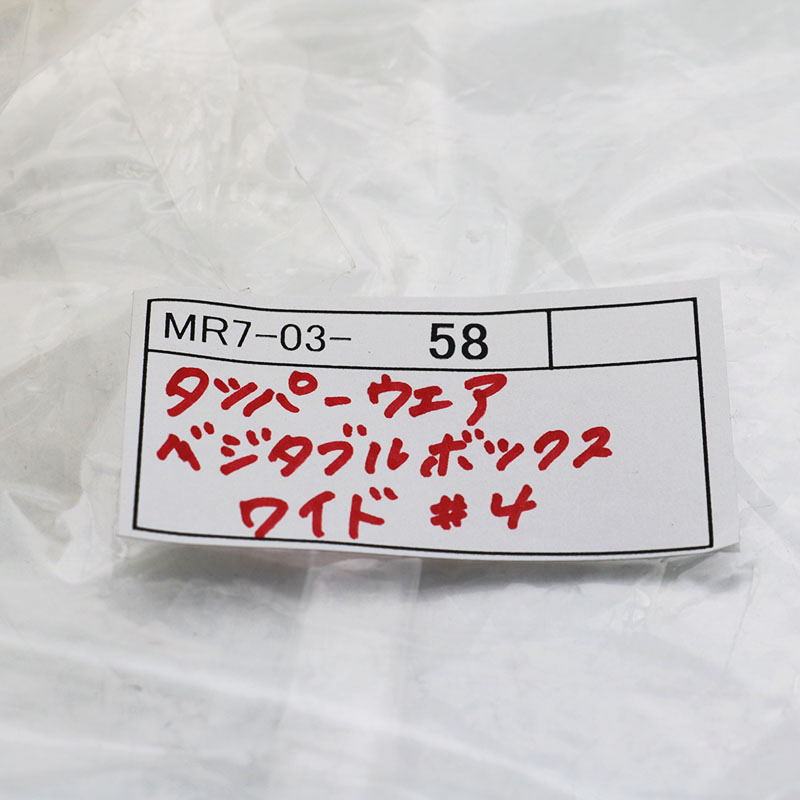 MR7-03- 58
タッパーウエア
ベジタブルボックス
ワイド #4